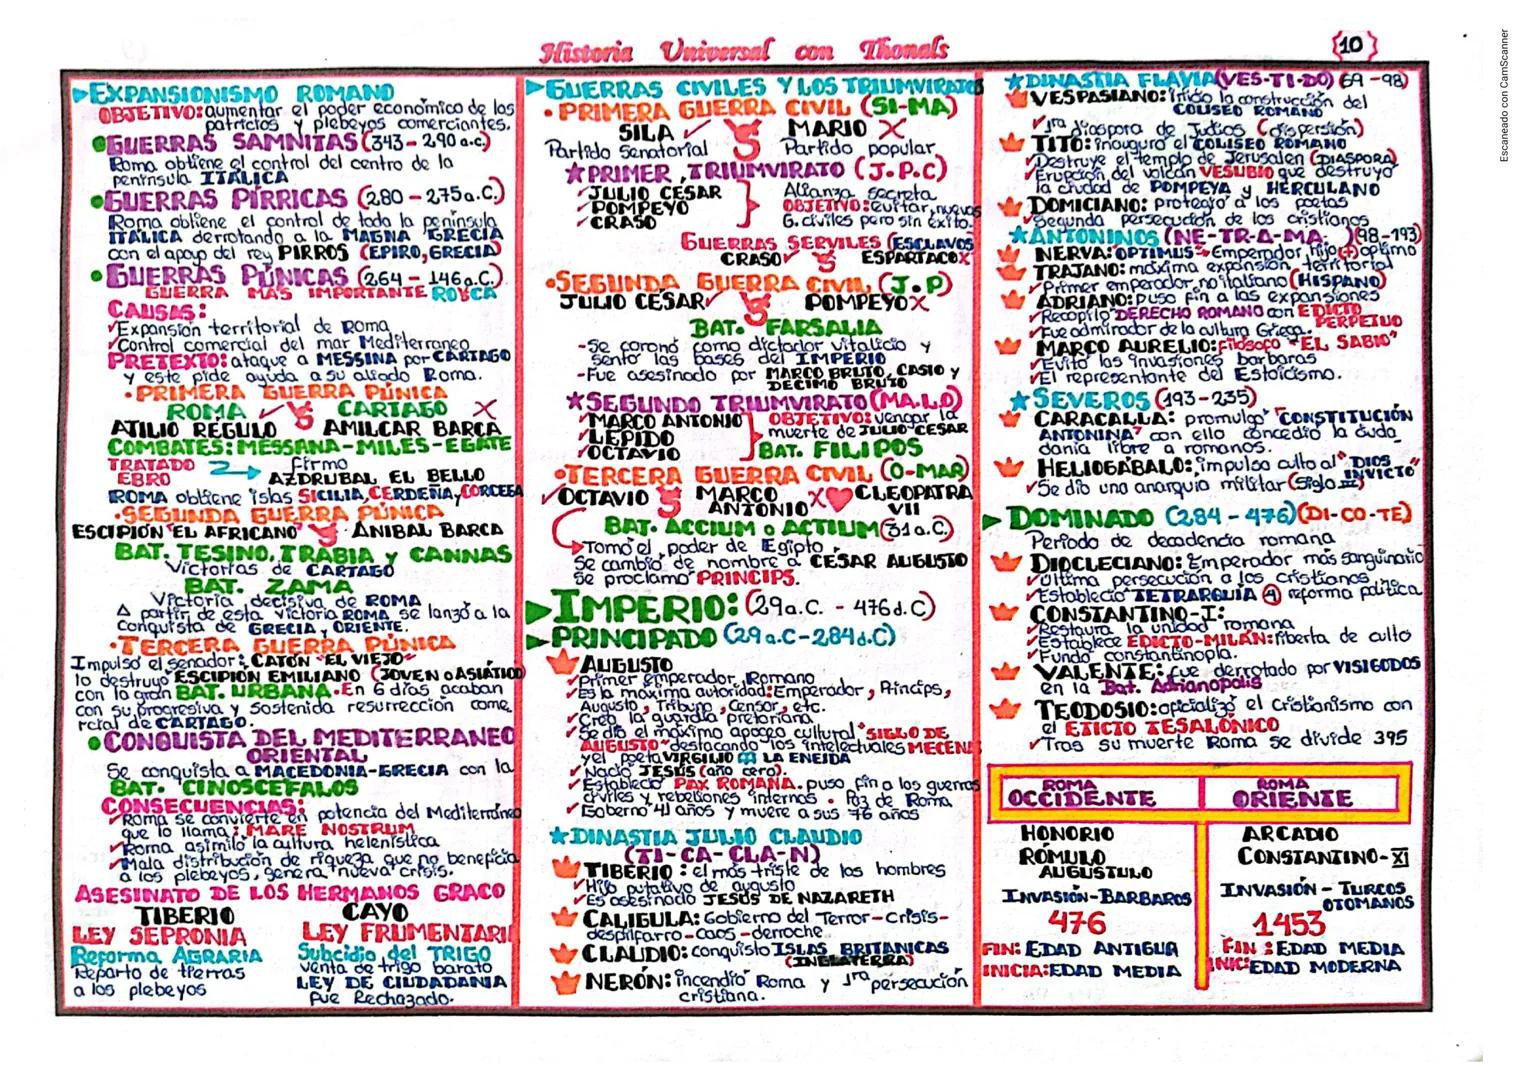 Historia Universal con Thonals
10
Escaneado con CamScanner
EXPANSIONISMO ROMANO
OBJETIVO: aumentar el poder económico de los
patricios y plebeyos comerciantes.
GUERRAS SAMNITAS (343-290 a.c.)
Roma obtiene el control del centro de la
península ITÁLICA
GUERRAS PÍRRICAS (280-275 a.C.)
Roma obtiene el control de toda la península
ITÁLICA derrotando a la MAGNA GRECIA
con el apoyo del rey PIRROS (EPIRO, GRECIA)
GUERRAS PÚNICAS (264-146 a.C.)
GUERRA MÁS IMPORTANTE ROSCA
CAUSAS:
✓Expansión territorial de Roma
✓Control comercial del mar Mediterraneo
PRETEXTO: ataque a MESSINA por CARTAGO
y este pide ayuda a su aliado Roma.
•PRIMERA GUERRA PÚNICA
ROMA ✓ VS CARTAGO X
ATILIO RÉGULO AMILCAR BARCA
COMBATES: MESSANA-MILES-EGATE
TRATADO firmo
EBRO AZDRUBAL EL BELLO
ROMA obtiene islas SICILIA, CERDEÑA y CORCEGA
•SEGUNDA GUERRA PÚNICA
ESCIPIÓN "EL AFRICANO" VS ANIBAL BARCA
BAT. TESINO, TRABIA y CANNAS
Victorias de CARTAGO
BAT. ZAMA
Victoria decisiva de ROMA
A partir de esta victoria ROMA se lanzó a la
conquista de GRECIA y ORIENTE.
•TERCERA GUERRA PÚNICA
Impulso el senador: CATÓN "EL VIEJO"
lo destruyo ESCIPIÓN EMILIANO (JOVEN o ASIÁTICO)
con la gran BAT. URBANA. En 6 días acaban
con su progresiva y sostenida resurrección come
rcial de CARTAGO.
CONQUISTA DEL MEDITERRANEO
ORIENTAL
Se conquista a MACEDONIA-GRECIA con la
BAT. CINOSCEFALOS
CONSECUENCIAS:
✓Roma se convierte en potencia del Mediterráneo
que lo llama: MARE NOSTRUM
✓Roma asimiló la cultura helenística
✓Mala distribución de riqueza que no beneficia
a los plebeyos, genera nueva crisis.
ASESINATO DE LOS HERMANOS GRACO
TIBERIO CAYO
LEY SEPRONIA LEY FRUMENTARI
Reforma AGRARIA Subcidio del TRIGO
Reparto de tierras venta de trigo barato
a los plebeyos LEY DE CIUDADANIA
fue Rechazado.
GUERRAS CIVILES Y LOS TRIUNVIRATOS
•PRIMERA GUERRA CIVIL (SI-MA)
SILA ✓ VS MARIO X
Partido Senatorial Partido popular
★PRIMER TRIUMVIRATO (J.P.C)
✓JULIO CESAR Alianza secreta
✓POMPEYO OBJETIVO: evitar nuevos
✓CRASO G. civiles pero sin éxito.
GUERRAS SERVILES (ESCLAVOS
CRASO✓ VS ESPARTACO X
•SEGUNDA GUERRA CIVIL (J.P)
JULIO CESAR✓ VS POMPEYO X
BAT. FARSALIA
-Se coronó como dictador vitalicio y
sentó las bases del IMPERIO
-Fue asesinado por MARCO BRUTO, CASIO y
DECIMO BRUTO
★SEGUNDO TRIUMVIRATO (MA.L.O)
✓MARCO ANTONIO OBJETIVO: vengar la
✓LEPIDO muerte de JULIO CESAR
✓OCTAVIO BAT. FILIPOS
•TERCERA GUERRA CIVIL (O-MAR)
✓OCTAVIO VS MARCO X CLEOPATRA
ANTONIO VII
BAT. ACCIUM o ACTIUM (31 a.C.)
Tomó el poder de Egipto
Se cambió de nombre a CESAR AUGUSTO
Se proclamo PRINCIPS.
IMPERIO: (29 a.C. - 476 d.C)
PRINCIPADO (29 a.C-284 d.C)
AUGUSTO
✓Primer emperador Romano
✓Es la máxima autoridad: Emperador, Princips,
Augusto, Tribuno, Censor, etc.
✓Creó la guardia pretoriana
✓Se dio el máximo apogeo cultural "SIGLO DE
AUGUSTO" destacando los intelectuales MECENAS
y el poeta VIRGILIO LA ENEIDA
✓Nació JESÚS (año cero).
✓Estableció PAX ROMANA. puso fin a los guerras
civiles y rebeliones internas. Paz de Roma
✓Gobernó 41 años y muere a sus 76 años
★DINASTIA JULIO CLAUDIO
(TI-CA-CLA-N)
TIBERIO: el más triste de los hombres
✓Hijo putativo de augusto
✓Es asesinado JESÚS DE NAZARETH
CALIGULA: Gobierno del Terror-Crisis-
despilfarro-Caos-derroche.
CLAUDIO: conquisto ISLAS BRITANICAS
(INGLATERRA)
NERÓN: incendió Roma y 1ra persecución
cristiana.
★DINASTIA FLAVIA (VES-TI-DO) 69-98)
VESPASIANO: Inicio la construcción del
COLISEO ROMANO
✓1ra diaspora de Judíos (dispersión)
TITO: inauguro el COLISEO ROMANO
✓Destruye el templo de Jerusalen (DIASPORA)
✓Erupción del volcán VESUBIO que destruyo
la ciudad de POMPEYA y HERCULANO
DOMICIANO: protegió a los poetas
✓Segunda persecución de los cristianos
★ANTONINOS (NE-TR-A-MA- )(98-193)
NERVA: OPTIMUS → Emperador, hijo(+) optimo
TRAJANO: máxima expansión territorial
✓Primer emperador no italiano (HISPANO)
ADRIANO: puso fin a las expansiones
✓Recopilo DERECHO ROMANO con EDICTO
PERPETUO
✓Fue admirador de la cultura Griega.
MARCO AURELIO: filosofo "EL SABIO"
✓Evitó las invasiones barbaras
✓El representante del Estoicismo.
★SEVEROS (193-235)
CARACALLA: promulgo "CONSTITUCIÓN
ANTONINA" con ello concedio la ciuda
danía libre a romanos.
HELIOGÁBALO: impulso culto al "DIOS
INVICTO"
✓Se dio una anarquía militar (Siglo III)
DOMINADO (284-476) (DI-CO-TE)
Periodo de decadencia romana
DIOCLECIANO: Emperador más sanguinario
✓Última persecución a los cristianos
✓Establecio TETRARQUÍA 4 reforma política
CONSTANTINO-I:
✓Restaura la unidad romana
✓Establece EDICTO-MILÁN: liberta de culto
✓Fundó constantinopla.
VALENTE: fue derrotado por VISIGODOS
en la Bat. Adrianopolis
TEODOSIO: oficializó el Cristianismo con
el EDICTO TESALÓNICO
✓Tras su muerte Roma se divide 395
ROMA ROMA
OCCIDENTE ORIENTE
HONORIO ARCADIO
RÓMULO CONSTANTINO-XI
AUGUSTULO
INVASIÓN-BARBAROS INVASIÓN-TURCOS
OTOMANOS
476 1453
FIN: EDAD ANTIGUA FIN: EDAD MEDIA
INICIA: EDAD MEDIA INIC: EDAD MODERNA